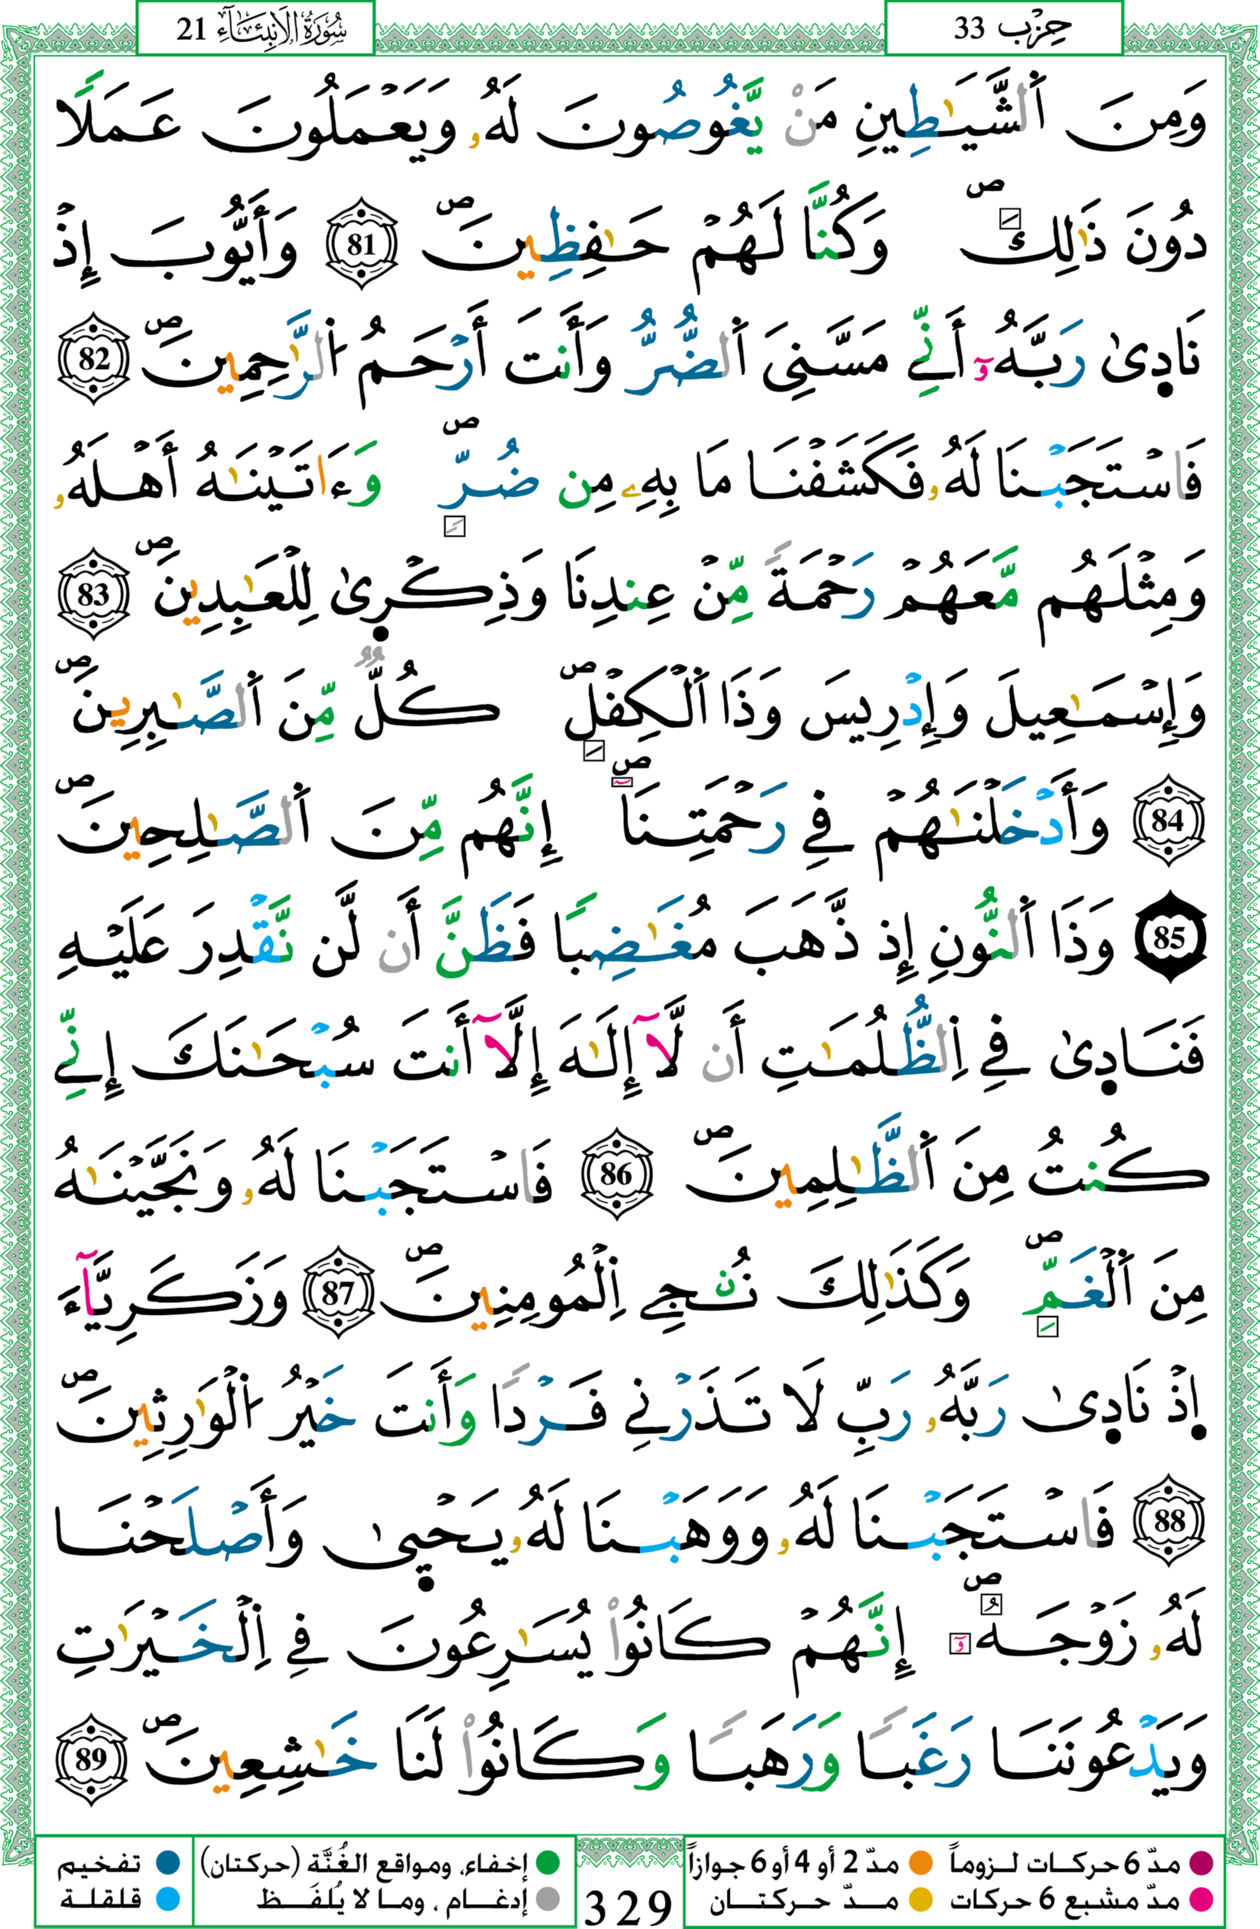 حِزْب 33
سُورَةُ الأَنبِيَاءِ 21
وَمِنَ اَ۬لشَّيَٰطِينِ مَنْ يَّغُوصُونَ لَهُۥ وَيَعْمَلُونَ عَمَلًا
دُونَ ذَٰلِكَۖ وَكُنَّا لَهُمْ حَٰفِظِينَۖ 81 وَأَيُّوبَ إِذْ
نَادٜىٰ رَبَّهُۥٓ أَنِّے مَسَّنِىَ اَ۬لضُّرُّ وَأَنتَ أَرْحَمُ اُ۬لرَّٰحِمِينَۖ 82
فَاسْتَجَبْنَا لَهُۥ فَكَشَفْنَا مَا بِهِۦ مِن ضُرّٖۖ وَءَاتَيْنَٰهُ أَهْلَهُۥ
وَمِثْلَهُم مَّعَهُمْ رَحْمَةٗ مِّنْ عِندِنَا وَذِكْرٜىٰ لِلْعَٰبِدِينَۖ 83
وَإِسْمَٰعِيلَ وَإِدْرِيسَ وَذَا اَ۬لْكِفْلِۖ كُلّٞ مِّنَ اَ۬لصَّٰبِرِينَۖ
84 وَأَدْخَلْنَٰهُمْ فِے رَحْمَتِنَاۖ إِنَّهُم مِّنَ اَ۬لصَّٰلِحِينَۖ
85 وَذَا اَ۬لنُّونِ إِذ ذَّهَبَ مُغَٰضِبًا فَظَنَّ أَن لَّن نَّقْدِرَ عَلَيْهِ
فَنَادٜىٰ فِے اِ۬لظُّلُمَٰتِ أَن لَّآ إِلَٰهَ إِلَّآ أَنتَ سُبْحَٰنَكَ إِنِّے
كُنتُ مِنَ اَ۬لظَّٰلِمِينَۖ 86 فَاسْتَجَبْنَا لَهُۥ وَنَجَّيْنَٰهُ
مِنَ اَ۬لْغَمِّۖ وَكَذَٰلِكَ نُۨجِے اِ۬لْمُومِنِينَۖ 87 وَزَكَرِيَّآءَ
اِ۪ذْ نَادٜىٰ رَبَّهُۥ رَبِّ لَا تَذَرْنِے فَرْدٗا وَأَنتَ خَيْرُ اُ۬لْوَٰرِثِينَۖ
88 فَاسْتَجَبْنَا لَهُۥ وَوَهَبْنَا لَهُۥ يَحْيٜىٰ وَأَصْلَحْنَا
لَهُۥ زَوْجَهُۥٓۖ إِنَّهُمْ كَانُواْ يُسَٰرِعُونَ فِے اِ۬لْخَيْرَٰتِ
وَيَدْعُونَنَا رَغَبٗا وَرَهَبٗا وَكَانُواْ لَنَا خَٰشِعِينَۖ 89
مدّ 6 حركات لـزوماً مدّ 2 أو 4 أو 6 جوازاً إخفاء، ومواقع الغُنَّة (حركتان) تفخيم
مدّ مشبع 6 حركات مـدّ حركتان إدغام ، وما لا يُلفَـظ قلقلة
329